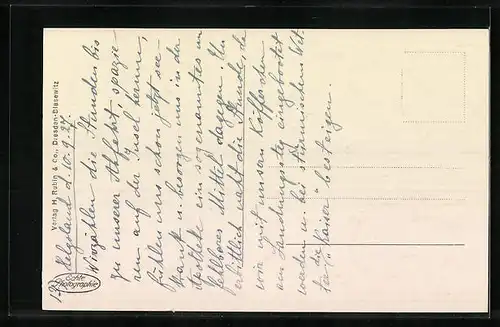 Verlag H. Rubin & Co., Dresden-Blasewitz
Echte Photographie
Helgoland d. 10.9.27.
Wir zählen die Stunden bis
zu unserer Abfahrt, spazie-
ren auf der Insel herum,
fühlen uns schon jetzt see-
krank u. besorgen uns in der
Apotheke ein sogenanntes un
fehlbares Mittel dagegen. Un
erbittlich naht die Stunde, da
wir mit unseren Köfferchen
am Landungssteg eingebootet
werden u. bei stürmischem Wet
ter die
„Kaiser" besteigen.